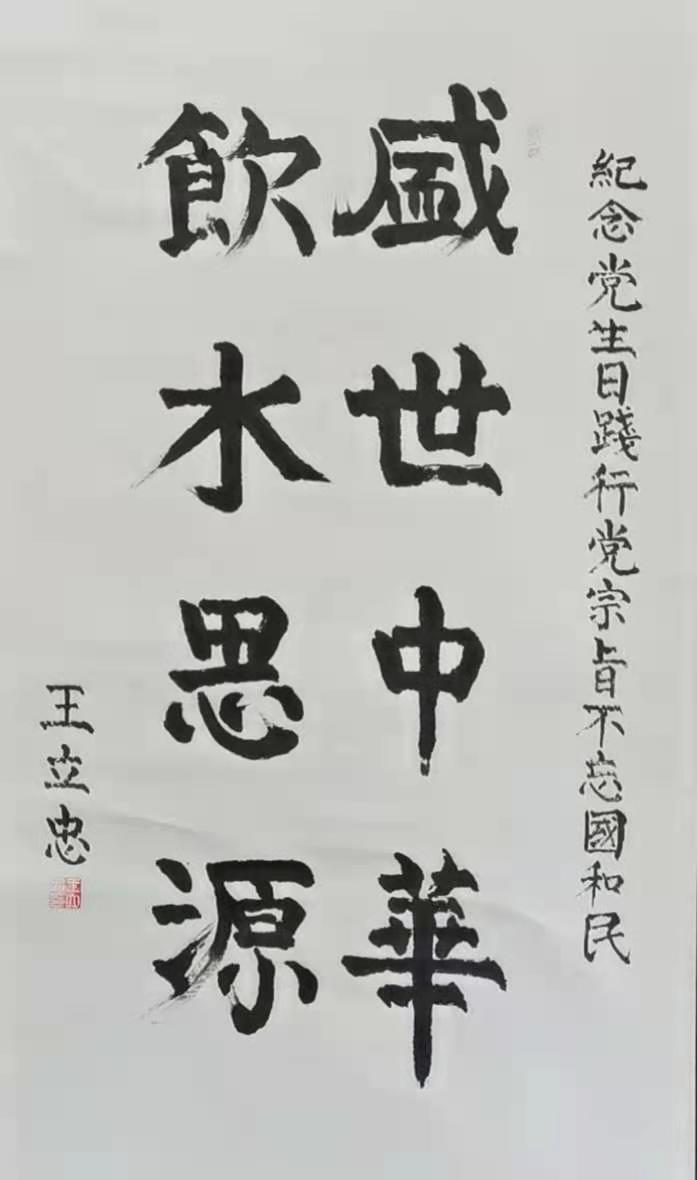 紀念党生日踐行党宗旨不忘國和民
盛世中華
飲水思源
王立忠